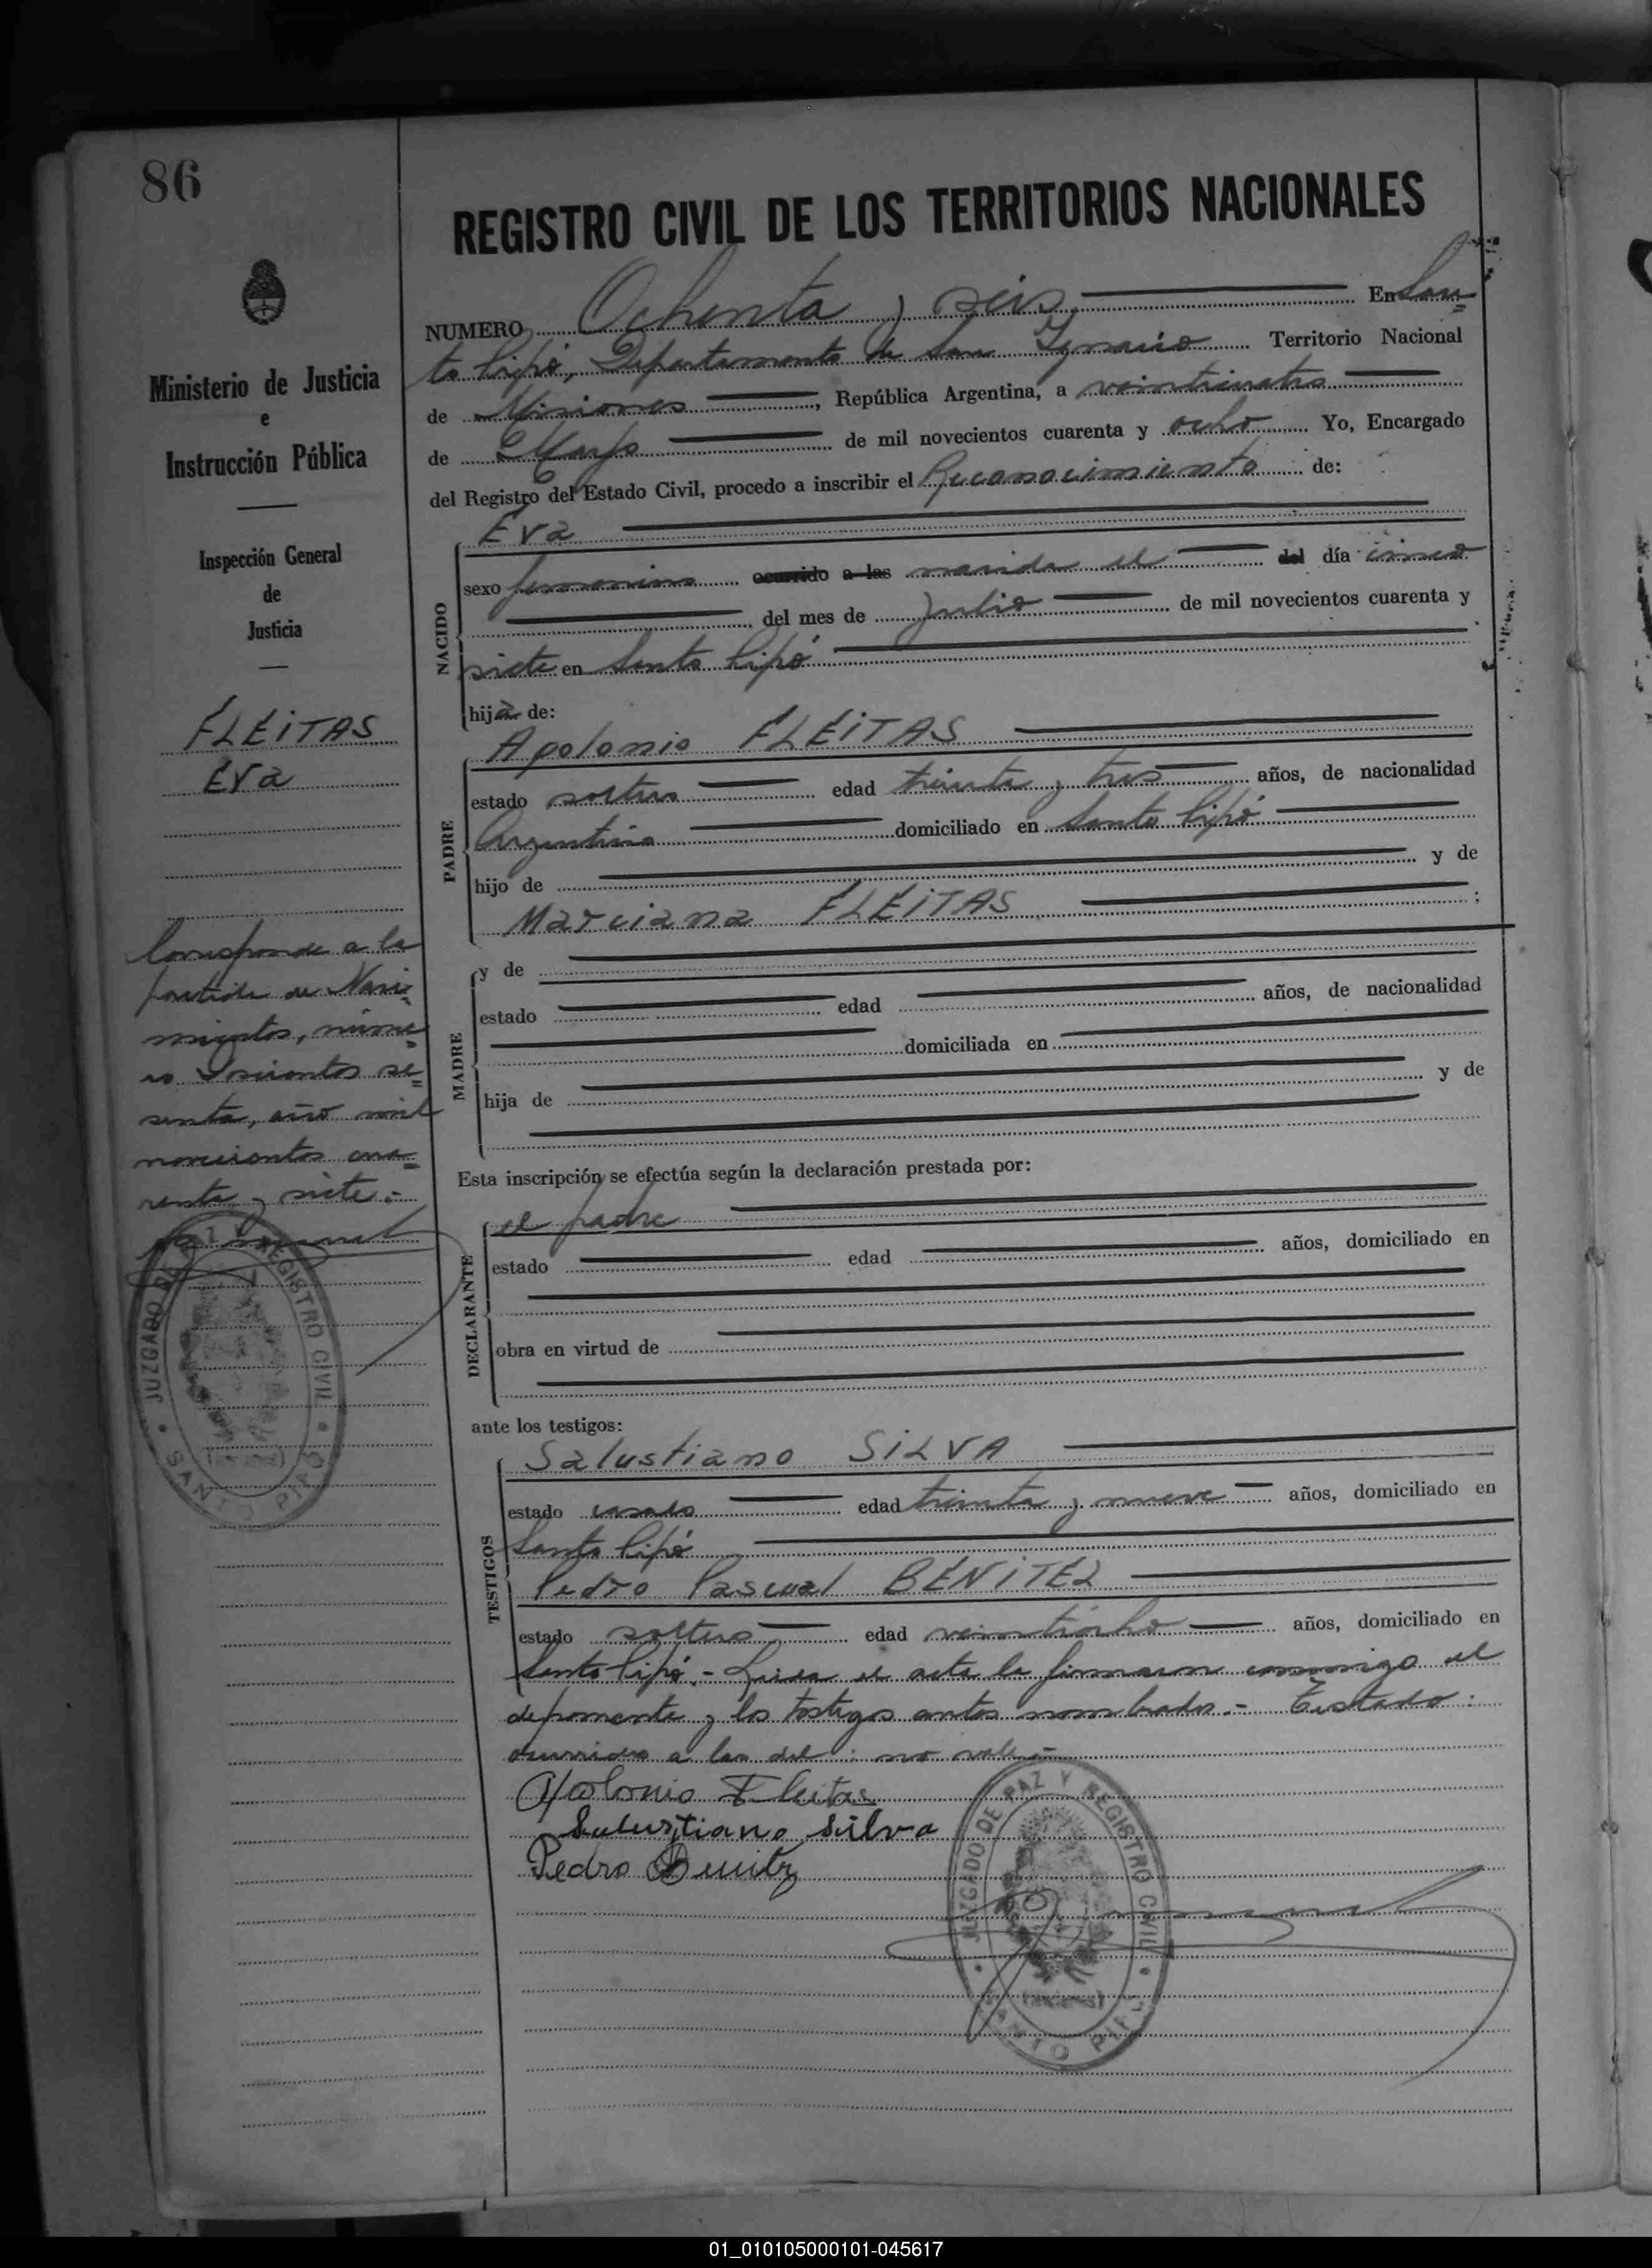 86
Ministerio de Justicia
e
Instrucción Pública
Inspección General
de
Justicia
FLEITAS
Eva
Corresponde a la
partida de Naci-
mientos, núme-
ro Doscientos se-
senta, año mil
novecientos cua-
renta y siete.-
JUZGADO DE PAZ Y REGISTRO CIVIL
SANTO PIPÓ
(Misiones)
REGISTRO CIVIL DE LOS TERRITORIOS NACIONALES
NUMERO Ochenta y seis En San-
to Pipó, Departamento de San Ignacio Territorio Nacional
de Misiones, República Argentina, a veinticuatro
de Mayo de mil novecientos cuarenta y ocho Yo, Encargado
del Registro del Estado Civil, procedo a inscribir el Reconocimiento de:
NACIDO
Eva
sexo femenino ocurrido a las nacida el del día cinco
del mes de Julio de mil novecientos cuarenta y
siete en Santo Pipó
hija de:
PADRE
Apolonio FLEITAS
estado soltero edad treinta y tres años, de nacionalidad
Argentina domiciliado en Santo Pipó
hijo de y de
Marciana FLEITAS ;
MADRE
y de
estado edad años, de nacionalidad
domiciliada en
hija de y de
Esta inscripción se efectúa según la declaración prestada por:
DECLARANTE
el padre
estado edad años, domiciliado en
obra en virtud de
ante los testigos:
TESTIGOS
Salustiano SILVA
estado casado edad treinta y nueve años, domiciliado en
Santo Pipó
Pedro Pascual BENITEZ
estado soltero edad veintiocho años, domiciliado en
Santo Pipó.- Leída el acta la firmaron conmigo el
deponente y los testigos antes nombrados.- Testado:
ocurrido a las del: no vale.-
Apolonio Fleitas
Salustiano Silva
Pedro Benitez
JUZGADO DE PAZ Y REGISTRO CIVIL
SANTO PIPÓ
(Misiones)
01_010105000101-045617